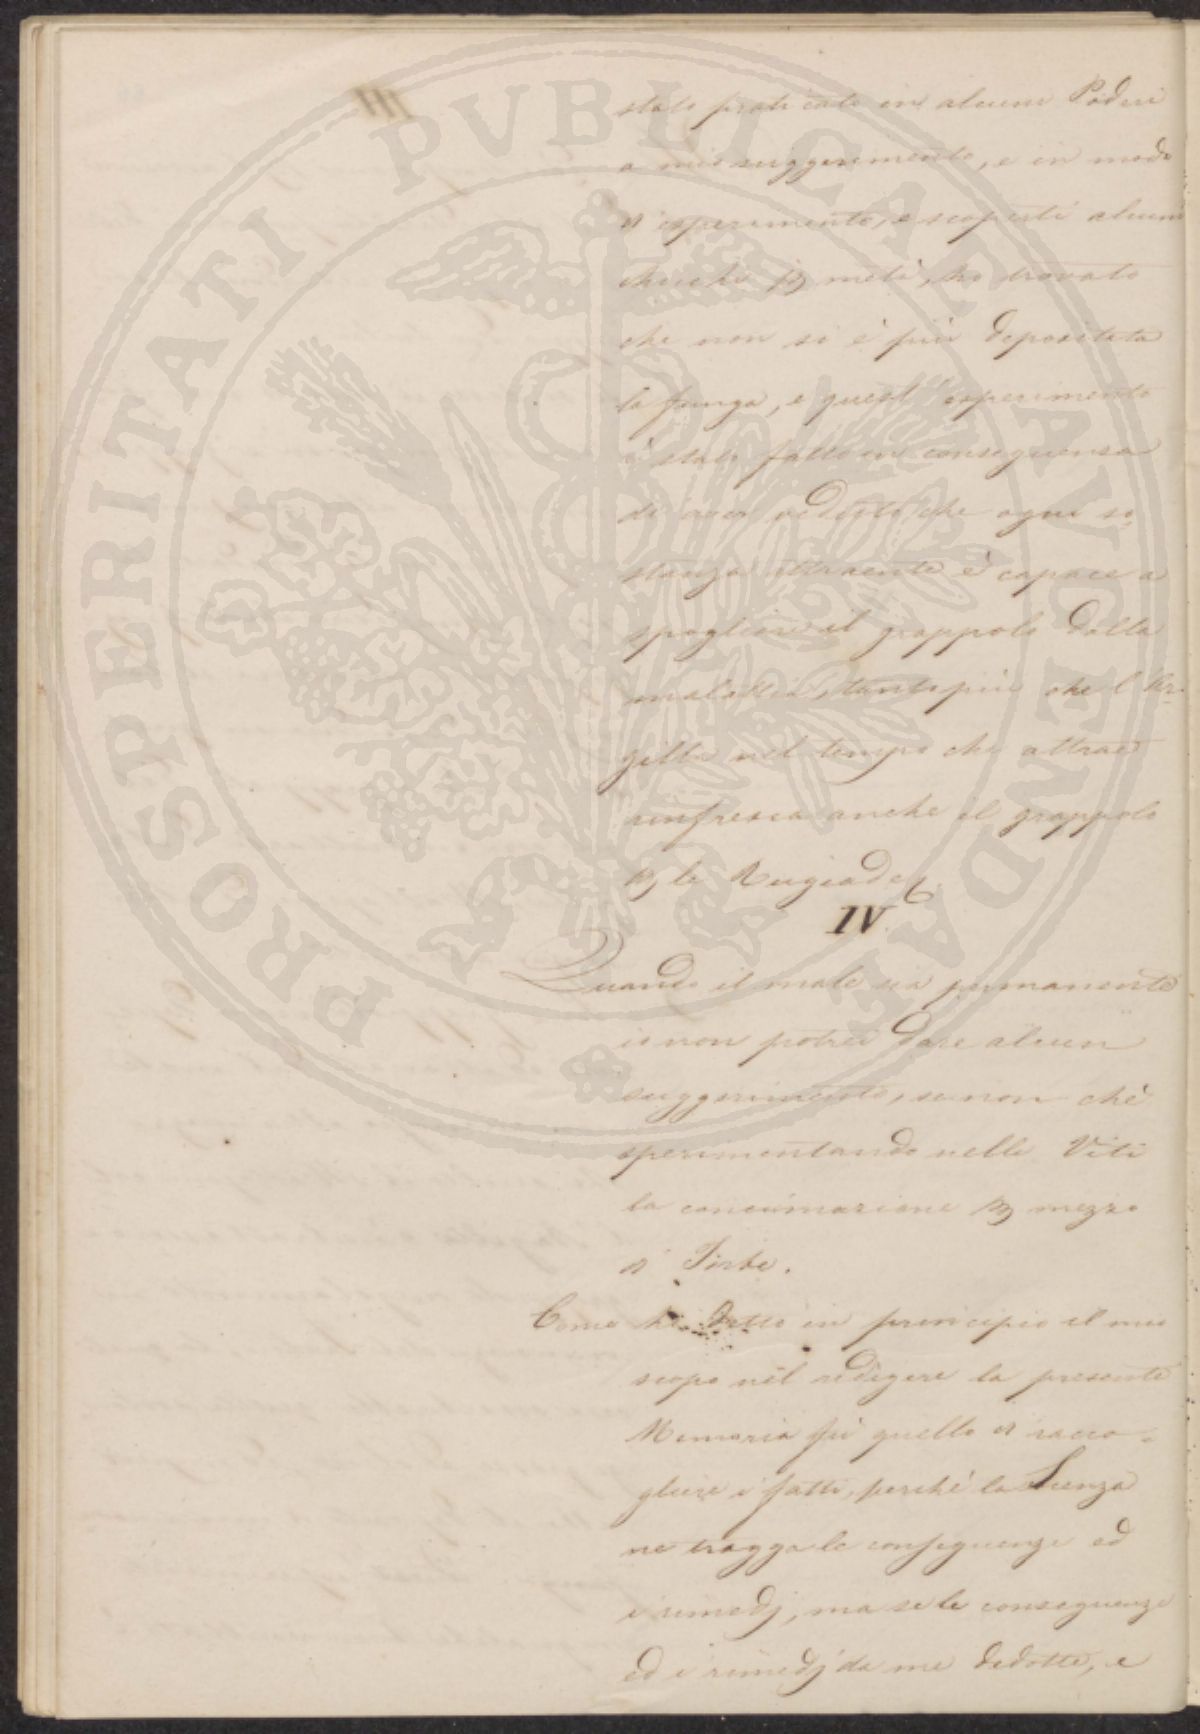 stato praticato in alcuni Poderi
a mio suggerimento, e in modo
d'esperimento, e scoperti alcuni
chicchi p metà, ho trovato
che non si è più depositata
la funga, e quest'esperimento
è stato fatto in conseguenza
di aver veduto che ogni so-
stanza attraente è capace a
spogliare il grappolo dalla
malattia, tantopiù che l'Ar-
gilla nel tempo che attrae
rinfresca anche il grappolo
p le Rugiade.
IV.
Quando il male sia permanente
io non potrei dare alcun
suggerimento, se non che
sperimentando nelle Viti
la concimazione p mezzo
di Torbe.
Come ho detto in principio il mio
scopo nel redigere la presente
Memoria fù quello di racco-
gliere i fatti, perchè la Scienza
ne tragga le conseguenze ed
i rimedj, ma se le conseguenze
ed i rimedj da me dedotte, e
PROSPERITATI PUBLICAE AUGENDAE